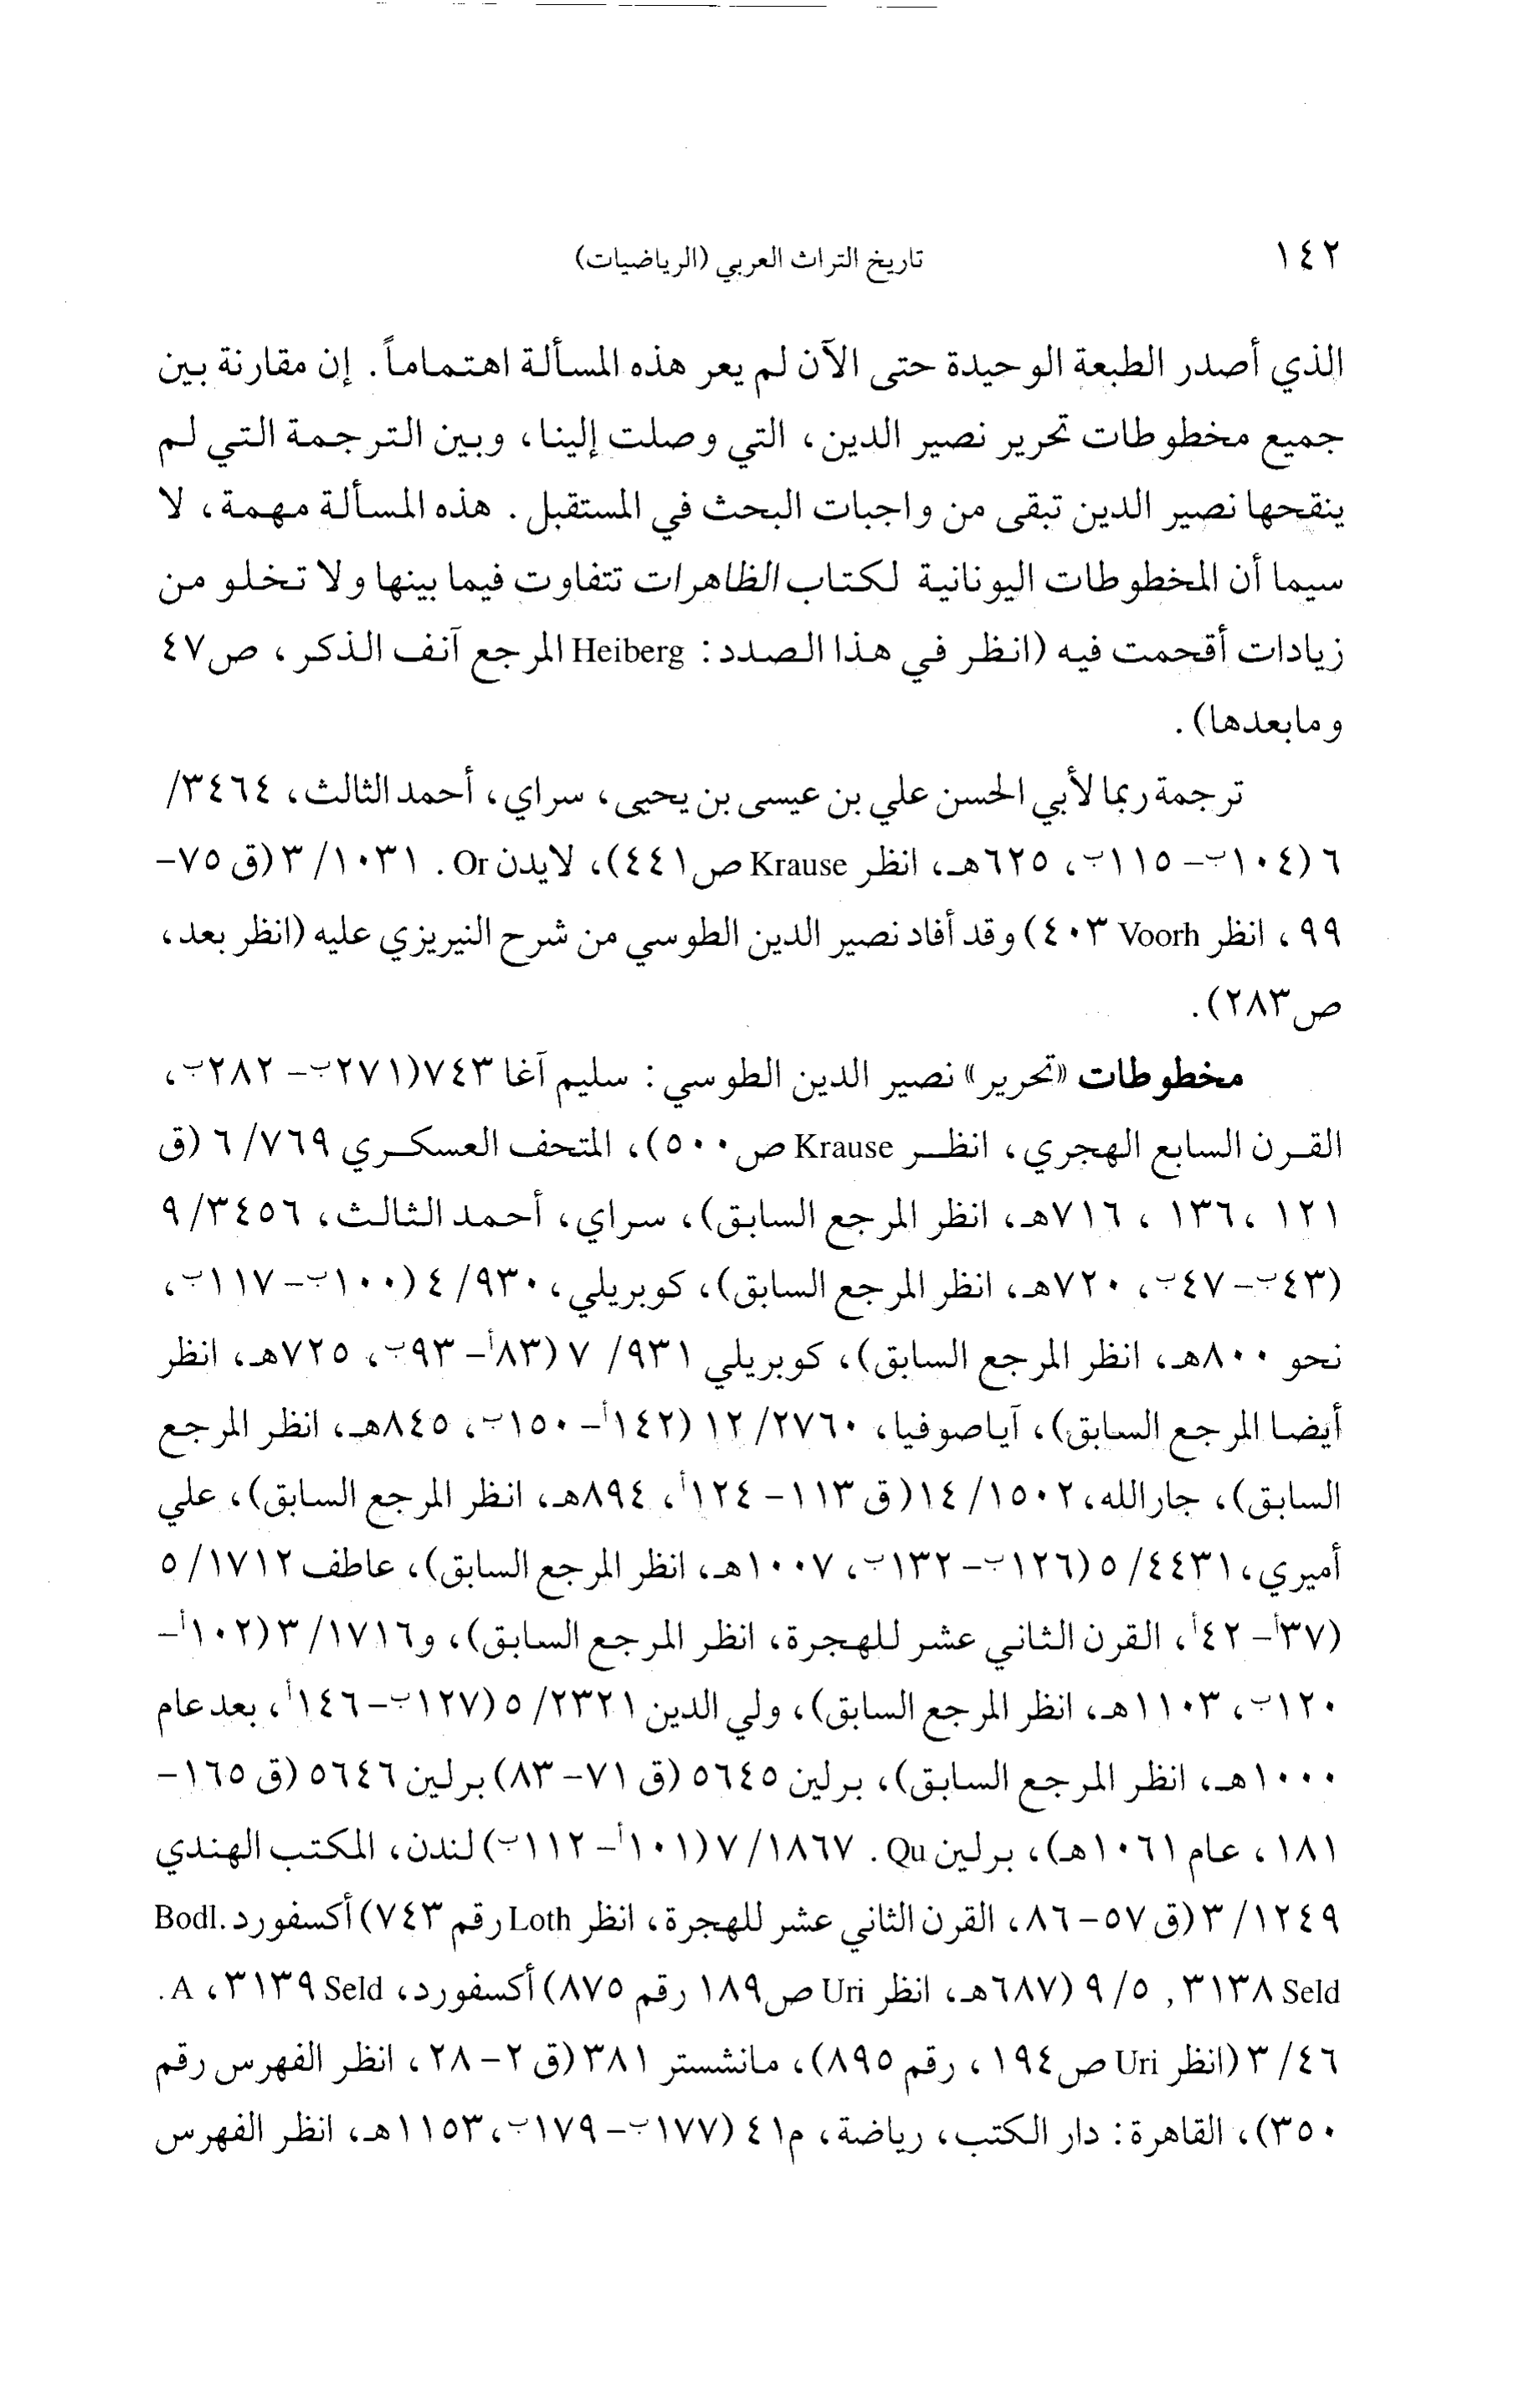 ١٤٢ تاريخ التراث العربي (الرياضيات)
الذي أصدر الطبعة الوحيدة حتى الآن لم يعر هذه المسألة اهتماماً. إن مقارنة بين
جميع مخطوطات تحرير نصير الدين، التي وصلت إلينا، وبين الترجمة التي لم
ينقحها نصير الدين تبقى من واجبات البحث في المستقبل. هذه المسألة مهمة، لا
سيما أن المخطوطات اليونانية لكتاب الظاهرات تتفاوت فيما بينها ولا تخلو من
زيادات أقحمت فيه (انظر في هذا الصدد: Heiberg المرجع آنف الذكر، ص٤٧
ومابعدها).
ترجمة ربما لأبي الحسن علي بن عيسى بن يحيى، سراي، أحمد الثالث، ٣٤٦٤/
٦ (١٠٤ب– ١١٥ب، ٦٢٥هـ، انظر Krause ص٤٤١)، لايدن Or. ١٠٣١/ ٣ (ق ٧٥–
٩٩، انظر Voorh ٤٠٣) وقد أفاد نصير الدين الطوسي من شرح النيريزي عليه (انظر بعد،
ص٢٨٣).
مخطوطات «تحرير» نصير الدين الطوسي: سليم آغا ٧٤٣(٢٧١ب– ٢٨٢ب،
القرن السابع الهجري، انظر Krause ص٥٠٠)، المتحف العسكري ٧٦٩/ ٦ (ق
١٢١ ،١٣٦ ، ٧١٦هـ، انظر المرجع السابق)، سراي، أحمد الثالث، ٣٤٥٦/ ٩
(٤٣ب–٤٧ب، ٧٢٠هـ، انظر المرجع السابق)، كوبريلي، ٩٣٠/ ٤ (١٠٠ب–١١٧ب،
نحو ٨٠٠هـ، انظر المرجع السابق)، كوبريلي ٩٣١/ ٧ (٨٣أ– ٩٣ب، ٧٢٥هـ، انظر
أيضا المرجع السابق)، آياصوفيا، ٢٧٦٠/ ١٢ (١٤٢أ– ١٥٠ب، ٨٤٥هـ، انظر المرجع
السابق)، جارالله، ١٥٠٢/ ١٤(ق ١١٣– ١٢٤أ، ٨٩٤هـ، انظر المرجع السابق)، علي
أميري، ٤٤٣١/ ٥ (١٢٦ب–١٣٢ب، ١٠٠٧هـ، انظر المرجع السابق)، عاطف ١٧١٢/ ٥
(٣٧أ– ٤٢أ، القرن الثاني عشر للهجرة، انظر المرجع السابق)، و١٧١٦/ ٣(١٠٢أ–
١٢٠ب، ١١٠٣هـ، انظر المرجع السابق)، ولي الدين ٢٣٢١/ ٥ (١٢٧ب–١٤٦أ، بعد عام
١٠٠٠هـ، انظر المرجع السابق)، برلين ٥٦٤٥ (ق ٧١– ٨٣) برلين ٥٦٤٦ (ق ١٦٥–
١٨١، عام ١٠٦١هـ)، برلين Qu. ١٨٦٧/ ٧(١٠١أ– ١١٢ب) لندن، المكتب الهندي
١٢٤٩/ ٣ (ق ٥٧– ٨٦، القرن الثاني عشر للهجرة، انظر Loth رقم ٧٤٣) أكسفورد Bodl.
Seld ٣١٣٨, ٥/ ٩ (٦٨٧هـ، انظر Uri ص١٨٩ رقم ٨٧٥) أكسفورد، Seld ٣١٣٩، A.
٤٦/ ٣ (انظر Uri ص١٩٤، رقم ٨٩٥)، مانشستر ٣٨١ (ق ٢– ٢٨، انظر الفهرس رقم
٣٥٠)، القاهرة: دار الكتب، رياضة، م٤١ (١٧٧ب–١٧٩ب، ١١٥٣هـ، انظر الفهرس